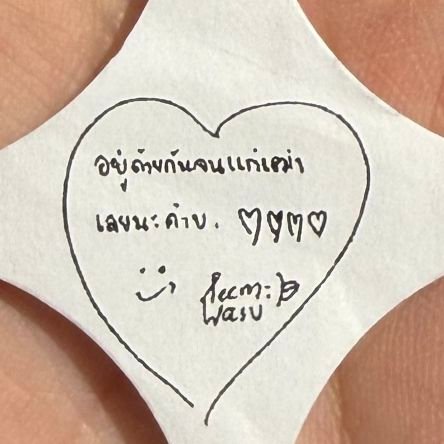 อยู่ด้วยกันจนแก่เฒ่า
เลยนะค้าบ.